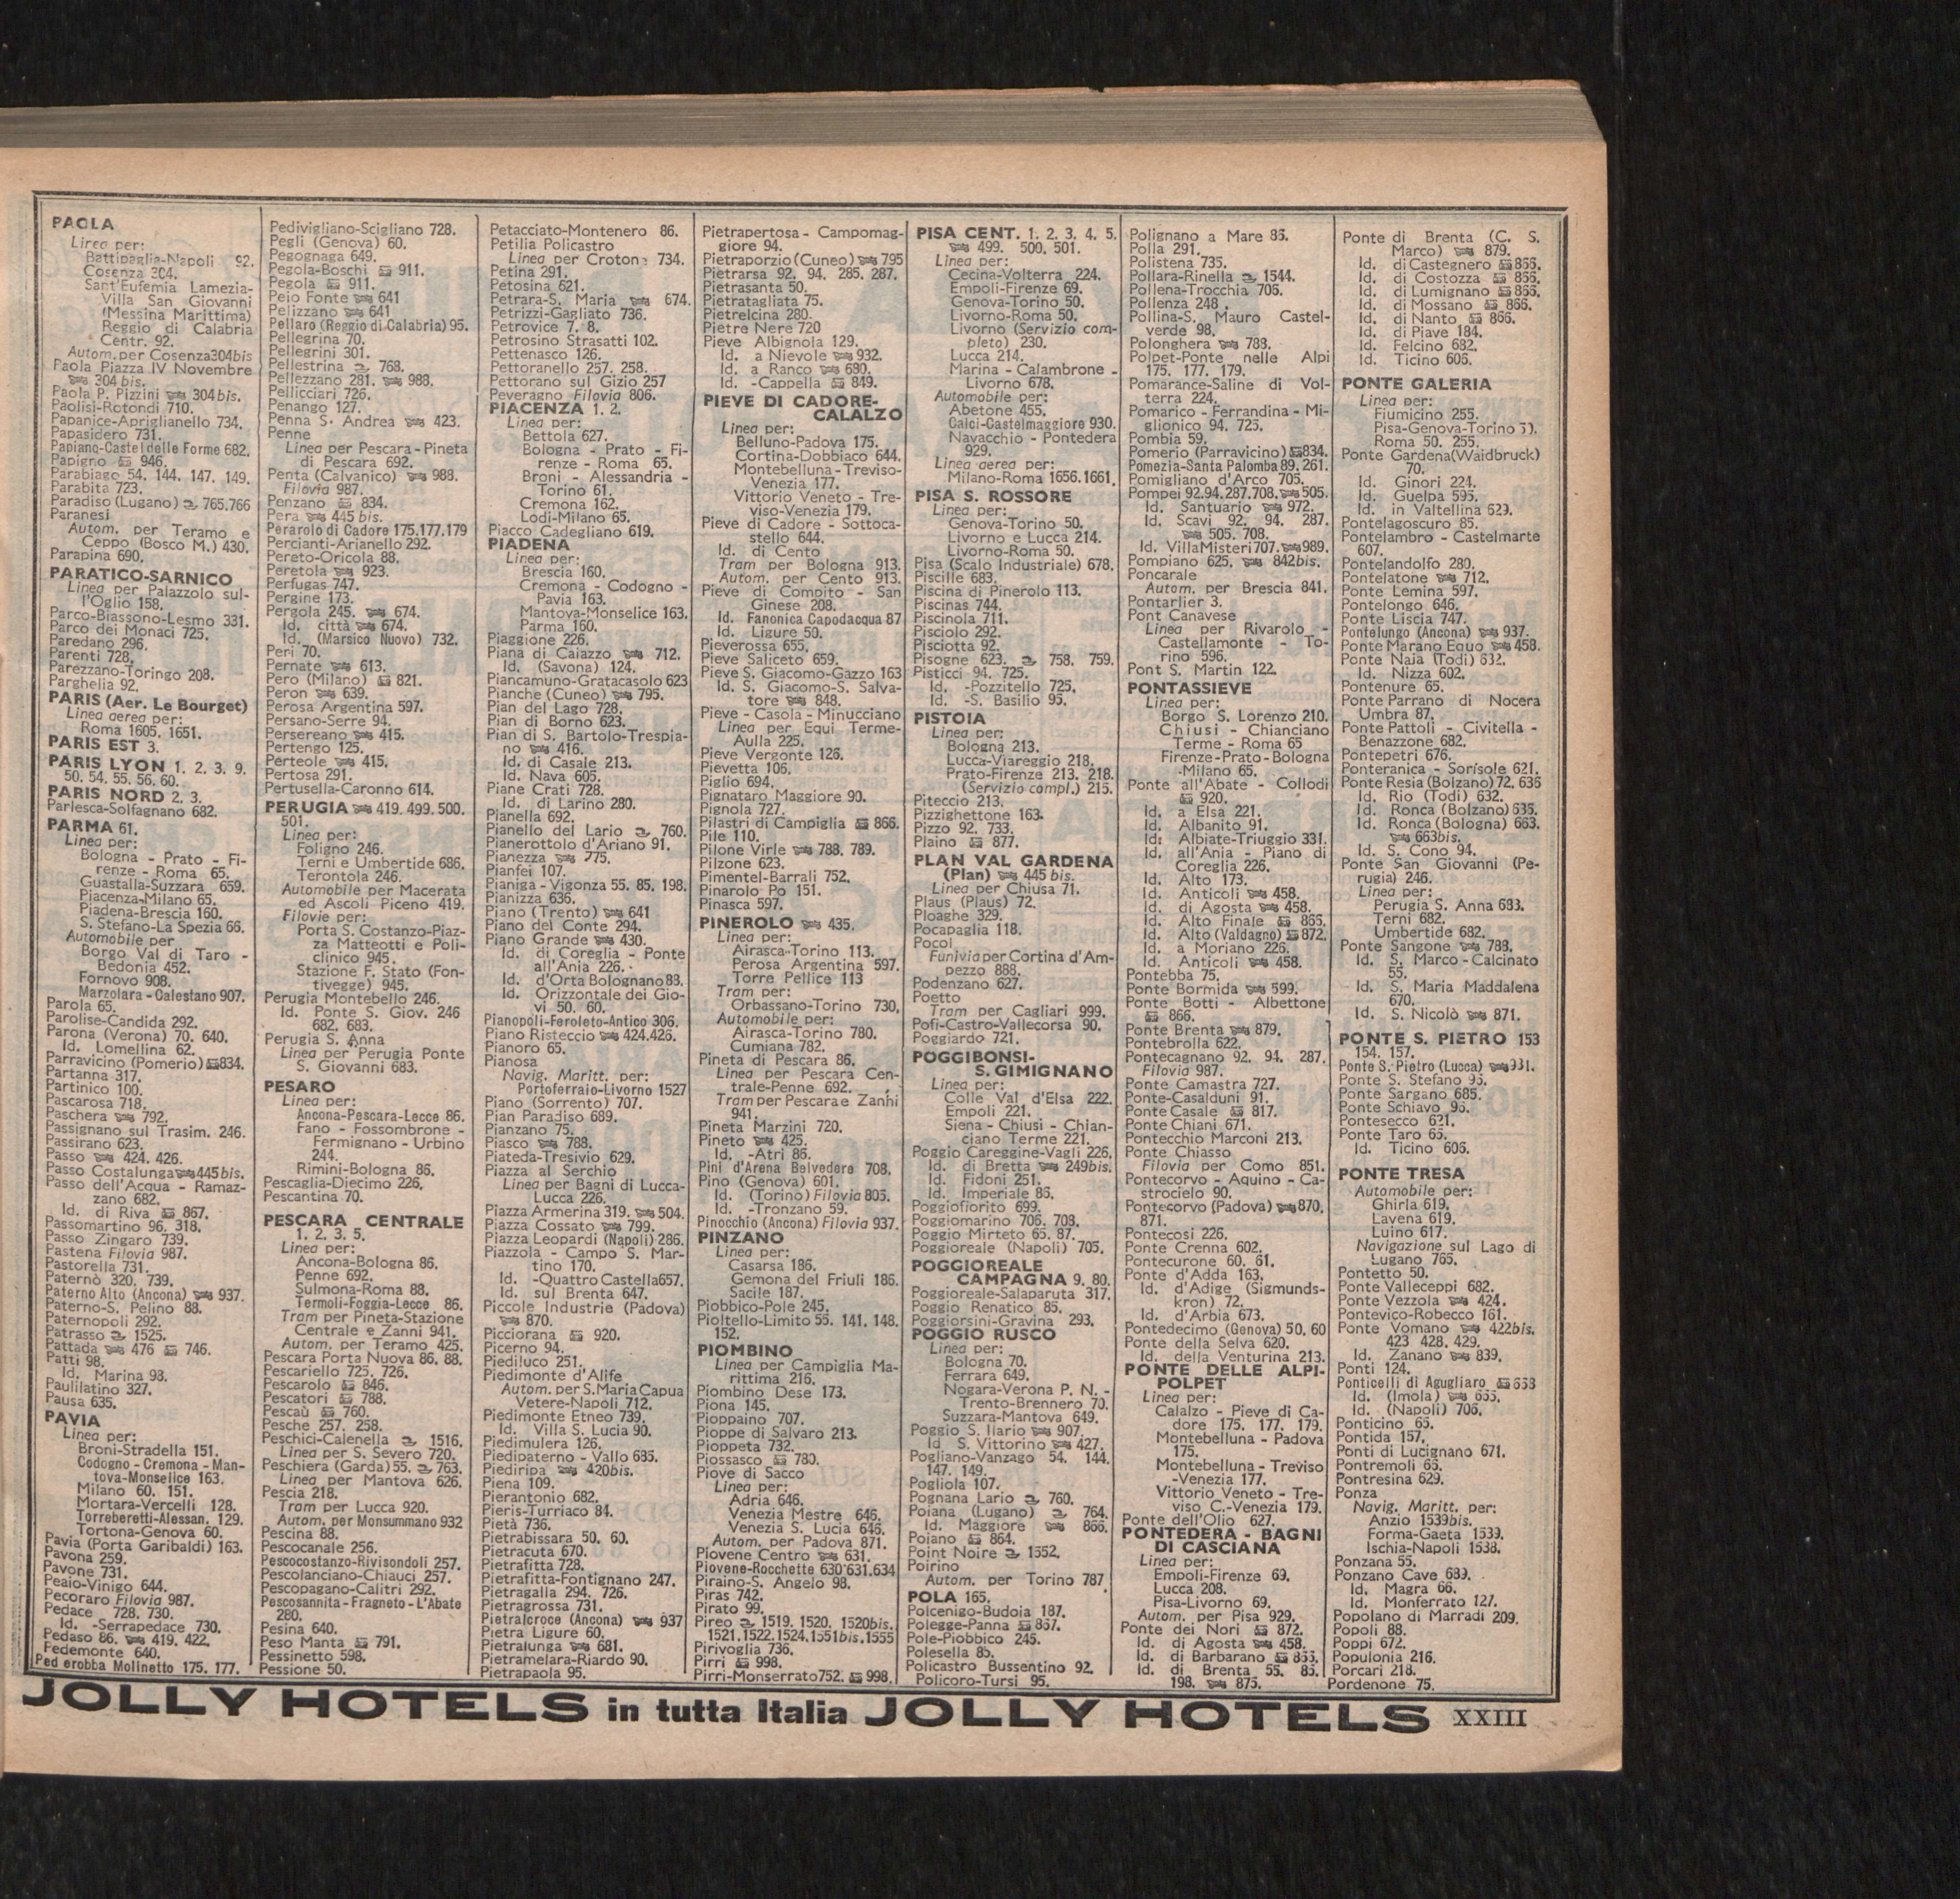 PAOLA
Linea per:
Battipaglia-Napoli 92.
Cosenza 304.
Sant'Eufemia Lamezia-
Villa San Giovanni
(Messina Marittima)
Reggio di Calabria
Centr. 92.
Autom. per Cosenza 304bis
Paola Piazza IV Novembre
304 bis.
Paola P. Pizzini 304bis.
Paolisi-Rotondi 710.
Papanice-Apriglianello 734.
Papasidero 731.
Papiano-Castel delle Forme 682.
Papigno 946.
Parabiago 54. 144. 147. 149.
Parabita 723.
Paradiso (Lugano) 765.766
Paranesi
Autom. per Teramo e
Ceppo (Bosco M.) 430.
Parapina 690.
PARATICO-SARNICO
Linea per Palazzolo sul-
l'Oglio 158.
Parco-Biassono-Lesmo 331.
Parco dei Monaci 725.
Paredano 296.
Parenti 728.
Parezzano-Toringo 208.
Parghelia 92.
PARIS (Aer. Le Bourget)
Linea aerea per:
Roma 1605. 1651.
PARIS EST 3.
PARIS LYON 1. 2. 3. 9.
50. 54. 55. 56. 60.
PARIS NORD 2. 3.
Parlesca-Solfagnano 682.
PARMA 61.
Linea per:
Bologna - Prato - Fi-
renze - Roma 65.
Guastalla-Suzzara 659.
Piacenza-Milano 65.
Piadena-Brescia 160.
S. Stefano-La Spezia 66.
Automobile per
Borgo Val di Taro -
Bedonia 452.
Fornovo 908.
Marzolara-Calestano 907.
Parola 65.
Parolise-Candida 292.
Parona (Verona) 70. 640.
Id. Lomellina 62.
Parravicino (Pomerio) 834.
Partanna 317.
Partinico 100.
Pascarosa 718.
Paschera 792.
Passignano sul Trasim. 246.
Passirano 623.
Passo 424. 426.
Passo Costalunga 445bis.
Passo dell'Acqua - Ramaz-
zano 682.
Id. di Riva 867.
Passomartino 96. 318.
Passo Zingaro 739.
Pastena Filovia 987.
Pastorella 731.
Paternò 320. 739.
Paterno Alto (Ancona) 937.
Paterno-S. Pelino 88.
Paternopoli 292.
Patrasso 1525.
Pattada 476 746.
Patti 98.
Id. Marina 98.
Paulilatino 327.
Pausa 635.
PAVIA
Linea per:
Broni-Stradella 151.
Codogno - Cremona - Man-
tova-Monselice 163.
Milano 60. 151.
Mortara-Vercelli 128.
Torreberetti-Alessan. 129.
Tortona-Genova 60.
Pavia (Porta Garibaldi) 163.
Pavona 259.
Pavone 731.
Peaio-Vinigo 644.
Pecoraro Filovia 987.
Pedace 728. 730.
Id. -Serrapedace 730.
Pedaso 86. 419. 422.
Pedemonte 640.
Pederobba Molinetto 175. 177.
Pedivigliano-Scigliano 728.
Pegli (Genova) 60.
Pegognaga 649.
Pegola-Boschi 911.
Pegola 911.
Peio Fonte 641
Pelizzano 641
Pellaro (Reggio di Calabria) 95.
Pellegrina 70.
Pellegrini 301.
Pellestrina 768.
Pellezzano 281. 988.
Pellicciari 726.
Penango 127.
Penna S. Andrea 423.
Penne
Linea per Pescara-Pineta
di Pescara 692.
Penta (Calvanico) 988.
Filovia 987.
Penzano 834.
Pera 445 bis.
Perarolo di Cadore 175.177.179
Percianti-Arianello 292.
Pereto-Oricola 88.
Peretola 923.
Perfugas 747.
Pergine 173.
Pergola 245. 674.
Id. città 674.
Id. (Marsico Nuovo) 732.
Peri 70.
Pernate 613.
Pero (Milano) 821.
Peron 639.
Perosa Argentina 597.
Persano-Serre 94.
Persereano 415.
Pertengo 125.
Perteole 415.
Pertosa 291.
Pertusella-Caronno 614.
PERUGIA 419. 499. 500.
501.
Linea per:
Foligno 246.
Terni e Umbertide 686.
Terontola 246.
Automobile per Macerata
ed Ascoli Piceno 419.
Filovie per:
Porta S. Costanzo-Piaz-
za Matteotti e Poli-
clinico 945.
Stazione F. Stato (Fon-
tivegge) 945.
Perugia Montebello 246.
Id. Ponte S. Giov. 246
682. 683.
Perugia S. Anna
Linea per Perugia Ponte
S. Giovanni 683.
PESARO
Linea per:
Ancona-Pescara-Lecce 86.
Fano - Fossombrone -
Fermignano - Urbino
244.
Rimini-Bologna 86.
Pescaglia-Diecimo 226.
Pescantina 70.
PESCARA CENTRALE
1. 2. 3. 5.
Linea per:
Ancona-Bologna 86.
Penne 692.
Sulmona-Roma 88.
Termoli-Foggia-Lecce 86.
Tram per Pineta-Stazione
Centrale e Zanni 941.
Autom. per Teramo 425.
Pescara Porta Nuova 86. 88.
Pescariello 725. 726.
Pescarolo 846.
Pescatori 788.
Pescaù 760.
Pesche 257. 258.
Peschici-Calenella 1516.
Linea per S. Severo 720.
Peschiera (Garda) 55. 763.
Linea per Mantova 626.
Pescia 218.
Tram per Lucca 920.
Autom. per Monsummano 932
Pescina 88.
Pescocanale 256.
Pescocostanzo-Rivisondoli 257.
Pescolanciano-Chiauci 257.
Pescopagano-Calitri 292.
Pescosannita-Fragneto-L'Abate
280.
Pesina 640.
Peso Manta 791.
Pessinetto 598.
Pessione 50.
Petacciato-Montenero 86.
Petilia Policastro
Linea per Crotone 734.
Petina 291.
Petosina 621.
Petrara-S. Maria 674.
Petrizzi-Gagliato 736.
Petrovice 7. 8.
Petrosino Strasatti 102.
Pettenasco 126.
Pettoranello 257. 258.
Pettorano sul Gizio 257
Peveragno Filovia 806.
PIACENZA 1. 2.
Linea per:
Bettola 627.
Bologna - Prato - Fi-
renze - Roma 65.
Broni - Alessandria -
Torino 61.
Cremona 162.
Lodi-Milano 65.
Piacco Cadegliano 619.
PIADENA
Linea per:
Brescia 160.
Cremona - Codogno -
Pavia 163.
Mantova-Monselice 163.
Parma 160.
Piaggione 226.
Piana di Caiazzo 712.
Id. (Savona) 124.
Piancamuno-Gratacasolo 623
Pianche (Cuneo) 795.
Pian del Lago 728.
Pian di Borno 623.
Pian di S. Bartolo-Trespia-
no 416.
Id. di Casale 213.
Id. Nava 605.
Piane Crati 728.
Id. di Larino 280.
Pianella 692.
Pianello del Lario 760.
Pianerottolo d'Ariano 91.
Pianezza 775.
Pianfei 107.
Pianiga-Vigonza 55. 85. 198.
Pianizza 636.
Piano (Trento) 641
Piano del Conte 294.
Piano Grande 430.
Id. di Coreglia - Ponte
all'Ania 226.
Id. d'Orta Bolognano 88.
Id. Orizzontale dei Gio-
vi 50. 60.
Pianopoli-Feroleto-Antico 306.
Piano Risteccio 424.426.
Pianoro 65.
Pianosa
Navig. Maritt. per:
Portoferraio-Livorno 1527
Piano (Sorrento) 707.
Pian Paradiso 689.
Pianzano 75.
Piasco 788.
Piateda-Tresivio 629.
Piazza al Serchio
Linea per Bagni di Lucca-
Lucca 226.
Piazza Armerina 319. 504.
Piazza Cossato 799.
Piazza Leopardi (Napoli) 286.
Piazzola - Campo S. Mar-
tino 170.
Id. -Quattro Castella 657.
Id. sul Brenta 647.
Piccole Industrie (Padova)
870.
Picciorana 920.
Picerno 94.
Piediluco 251.
Piedimonte d'Alife
Autom. per S. Maria Capua
Vetere-Napoli 712.
Piedimonte Etneo 739.
Id. Villa S. Lucia 90.
Piedimulera 126.
Piedipaterno - Vallo 685.
Piediripa 420bis.
Piena 109.
Pierantonio 682.
Pieris-Turriaco 84.
Pietà 736.
Pietrabissara 50. 60.
Pietracuta 670.
Pietrafitta 728.
Pietrafitta-Fontignano 247.
Pietragalla 294. 726.
Pietragrossa 731.
Pietralcroce (Ancona) 937
Pietra Ligure 60.
Pietralunga 681.
Pietramelara-Riardo 90.
Pietrapaola 95.
Pietrapertosa - Campomag-
giore 94.
Pietraporzio (Cuneo) 795
Pietrarsa 92. 94. 285. 287.
Pietrasanta 50.
Pietratagliata 75.
Pietrelcina 280.
Pietre Nere 720
Pieve Albignola 129.
Id. a Nievole 932.
Id. a Ranco 680.
Id. -Cappella 849.
PIEVE DI CADORE-
CALALZO
Linea per:
Belluno-Padova 175.
Cortina-Dobbiaco 644.
Montebelluna-Treviso-
Venezia 177.
Vittorio Veneto - Tre-
viso-Venezia 179.
Pieve di Cadore - Sottoca-
stello 644.
Id. di Cento
Tram per Bologna 913.
Autom. per Cento 913.
Pieve di Compito - San
Ginese 208.
Id. Fanonica Capodacqua 87
Id. Ligure 50.
Pieverossa 655.
Pieve Saliceto 659.
Pieve S. Giacomo-Gazzo 163
Id. S. Giacomo-S. Salva-
tore 848.
Pieve - Casola - Minucciano
Linea per Equi Terme-
Aulla 225.
Pieve Vergonte 126.
Pievetta 106.
Piglio 694.
Pignataro Maggiore 90.
Pignola 727.
Pilastri di Campiglia 866.
Pile 110.
Pilone Virle 788. 789.
Pilzone 623.
Pimentel-Barrali 752.
Pinarolo Po 151.
Pinasca 597.
PINEROLO 435.
Linea per:
Airasca-Torino 113.
Perosa Argentina 597.
Torre Pellice 113
Tram per:
Orbassano-Torino 730.
Automobile per:
Airasca-Torino 780.
Cumiana 782.
Pineta di Pescara 86.
Linea per Pescara Cen-
trale-Penne 692.
Tram per Pescara e Zanni
941.
Pineta Marzini 720.
Pineto 425.
Id. -Atri 86.
Pini d'Arena Belvedere 708.
Pino (Genova) 601.
Id. (Torino) Filovia 805.
Id. -Tronzano 59.
Pinocchio (Ancona) Filovia 937.
PINZANO
Linea per:
Casarsa 186.
Gemona del Friuli 186.
Sacile 187.
Piobbico-Pole 245.
Pioltello-Limito 55. 141. 148.
152.
PIOMBINO
Linea per Campiglia Ma-
rittima 216.
Piombino Dese 173.
Piona 145.
Pioppaino 707.
Pioppe di Salvaro 213.
Pioppeta 732.
Piossasco 780.
Piove di Sacco
Linea per:
Adria 646.
Venezia Mestre 646.
Venezia S. Lucia 646.
Autom. per Padova 871.
Piovene Centro 631.
Piovene-Rocchette 630.631.634
Piraino-S. Angelo 98.
Piras 742.
Pirato 99.
Pireo 1519. 1520. 1520bis.
1521.1522.1524.1551bis.1555
Pirivoglia 736.
Pirri 998.
Pirri-Monserrato 752. 998.
PISA CENT. 1. 2. 3. 4. 5.
499. 500. 501.
Linea per:
Cecina-Volterra 224.
Empoli-Firenze 69.
Genova-Torino 50.
Livorno-Roma 50.
Livorno (Servizio com-
pleto) 230.
Lucca 214.
Marina - Calambrone -
Livorno 678.
Automobile per:
Abetone 455.
Calci-Castelmaggiore 930.
Navacchio - Pontedera
929.
Linea aerea per:
Milano-Roma 1656.1661.
PISA S. ROSSORE
Linea per:
Genova-Torino 50.
Livorno e Lucca 214.
Livorno-Roma 50.
Pisa (Scalo Industriale) 678.
Piscille 683.
Piscina di Pinerolo 113.
Piscinas 744.
Piscinola 711.
Pisciolo 292.
Pisciotta 92.
Pisogne 623. 758. 759.
Pisticci 94. 725.
Id. -Pozzitello 725.
Id. -S. Basilio 95.
PISTOIA
Linea per:
Bologna 213.
Lucca-Viareggio 218.
Prato-Firenze 213. 218.
(Servizio compl.) 215.
Piteccio 213.
Pizzighettone 163.
Pizzo 92. 733.
Plaino 877.
PLAN VAL GARDENA
(Plan) 445 bis.
Linea per Chiusa 71.
Plaus (Plaus) 72.
Ploaghe 329.
Pocapaglia 118.
Pocol
Funivia per Cortina d'Am-
pezzo 888.
Podenzano 627.
Poetto
Tram per Cagliari 999.
Pofi-Castro-Vallecorsa 90.
Poggiardo 721.
POGGIBONSI-
S. GIMIGNANO
Linea per:
Colle Val d'Elsa 222.
Empoli 221.
Siena - Chiusi - Chian-
ciano Terme 221.
Poggio Careggine-Vagli 226.
Id. di Bretta 249bis.
Id. Fidoni 251.
Id. Imperiale 86.
Poggiofiorito 699.
Poggiomarino 706. 708.
Poggio Mirteto 65. 87.
Poggioreale (Napoli) 705.
POGGIOREALE
CAMPAGNA 9. 80.
Poggioreale-Salaparuta 317.
Poggio Renatico 85.
Poggiorsini-Gravina 293.
POGGIO RUSCO
Linea per:
Bologna 70.
Ferrara 649.
Nogara-Verona P. N. -
Trento-Brennero 70.
Suzzara-Mantova 649.
Poggio S. Ilario 907.
Id S. Vittorino 427.
Pogliano-Vanzago 54. 144.
147. 149.
Pogliola 107.
Pognana Lario 760.
Poiana (Lugano) 764.
Id. Maggiore 866.
Poiano 864.
Point Noire 1552.
Poirino
Autom. per Torino 787
POLA 165.
Polcenigo-Budoia 187.
Polegge-Panna 867.
Pole-Piobbico 245.
Polesella 85.
Policastro Bussentino 92.
Policoro-Tursi 95.
Polignano a Mare 86.
Polla 291.
Polistena 735.
Pollara-Rinella 1544.
Pollena-Trocchia 706.
Pollenza 248.
Pollina-S. Mauro Castel-
verde 98.
Polonghera 788.
Polpet-Ponte nelle Alpi
175. 177. 179.
Pomarance-Saline di Vol-
terra 224.
Pomarico - Ferrandina - Mi-
glionico 94. 725.
Pombia 59.
Pomerio (Parravicino) 834.
Pomezia-Santa Palomba 89. 261.
Pomigliano d'Arco 705.
Pompei 92.94.287.708. 505.
Id. Santuario 972.
Id. Scavi 92. 94. 287.
505. 708.
Id. Villa Misteri 707. 989.
Pompiano 625. 842bis.
Poncarale
Autom. per Brescia 841.
Pontarlier 3.
Pont Canavese
Linea per Rivarolo -
Castellamonte - To-
rino 596.
Pont S. Martin 122.
PONTASSIEVE
Linea per:
Borgo S. Lorenzo 210.
Chiusi - Chianciano
Terme - Roma 65
Firenze-Prato-Bologna
-Milano 65.
Ponte all'Abate - Collodi
920.
Id. a Elsa 221.
Id. Albanito 91.
Id. Albiate-Triuggio 331.
Id. all'Ania - Piano di
Coreglia 226.
Id. Alto 173.
Id. Anticoli 458.
Id. di Agosta 458.
Id. Alto Finale 865.
Id. Alto (Valdagno) 872.
Id. a Moriano 226.
Id. Anticoli 458.
Pontebba 75.
Ponte Bormida 599.
Ponte Botti - Albettone
866.
Ponte Brenta 879.
Pontebrolla 622.
Pontecagnano 92. 94. 287.
Filovia 987.
Ponte Camastra 727.
Ponte-Casalduni 91.
Ponte Casale 817.
Ponte Chiani 671.
Pontecchio Marconi 213.
Ponte Chiasso
Filovia per Como 851.
Pontecorvo - Aquino - Ca-
strocielo 90.
Pontecorvo (Padova) 870.
871.
Pontecosi 226.
Ponte Crenna 602.
Pontecurone 60. 61.
Ponte d'Adda 163.
Id. d'Adige (Sigmunds-
kron) 72.
Id. d'Arbia 673.
Pontedecimo (Genova) 50. 60
Ponte della Selva 620.
Id. della Venturina 213.
PONTE DELLE ALPI-
POLPET
Linea per:
Calalzo - Pieve di Ca-
dore 175. 177. 179.
Montebelluna - Padova
175.
Montebelluna - Treviso
-Venezia 177.
Vittorio Veneto - Tre-
viso C.-Venezia 179.
Ponte dell'Olio 627.
PONTEDERA - BAGNI
DI CASCIANA
Linea per:
Empoli-Firenze 69.
Lucca 208.
Pisa-Livorno 69.
Autom. per Pisa 929.
Ponte dei Nori 872.
Id. di Agosta 458.
Id. di Barbarano
Id. di Brenta 55. 85.
198. 875.
Ponte di Brenta (C. S.
Marco) 879.
Id. di Castegnero 866.
Id. di Costozza 866.
Id. di Lumignano 866.
Id. di Mossano 866.
Id. di Nanto 866.
Id. di Piave 184.
Id. Felcino 682.
Id. Ticino 606.
PONTE GALERIA
Linea per:
Fiumicino 255.
Pisa-Genova-Torino 50.
Roma 50. 255.
Ponte Gardena (Waidbruck)
70.
Id. Ginori 224.
Id. Guelpa 595.
Id. in Valtellina 629.
Pontelagoscuro 85.
Pontelambro - Castelmarte
607.
Pontelandolfo 280.
Pontelatone 712.
Ponte Lemina 597.
Pontelongo 646.
Ponte Liscia 747.
Pontelungo (Ancona) 937.
Ponte Marano Equo 458.
Ponte Naia (Todi) 632.
Id. Nizza 602.
Pontenure 65.
Ponte Parrano di Nocera
Umbra 87.
Ponte Pattoli - Civitella -
Benazzone 682.
Pontepetri 676.
Ponteranica - Sorisole 621.
Ponte Resia (Bolzano) 72. 636
Id. Rio (Todi) 632.
Id. Ronca (Bolzano) 636.
Id. Ronca (Bologna) 663.
663bis.
Id. S. Cono 94.
Ponte San Giovanni (Pe-
rugia) 246.
Linea per:
Perugia S. Anna 683.
Terni 682.
Umbertide 682.
Ponte Sangone 788.
Id. S. Marco - Calcinato
55.
Id. S. Maria Maddalena
670.
Id. S. Nicolò 871.
PONTE S. PIETRO 153
154. 157.
Ponte S. Pietro (Lucca) 931.
Ponte S. Stefano 96.
Ponte Sargano 685.
Ponte Schiavo 96.
Pontesecco 621.
Ponte Taro 65.
Id. Ticino 606.
PONTE TRESA
Automobile per:
Ghirla 619.
Lavena 619.
Luino 617.
Navigazione sul Lago di
Lugano 765.
Pontetto 50.
Ponte Valleceppi 682.
Ponte Vezzola 424.
Pontevico-Robecco 161.
Ponte Vomano 422bis.
423 428. 429.
Id. Zanano 839.
Ponti 124.
Ponticelli di Agugliaro
Id. (Imola)
Id. (Napoli) 706.
Ponticino 65.
Pontida 157.
Ponti di Lucignano 671.
Pontremoli 66.
Pontresina 629.
Ponza
Navig. Maritt. per:
Anzio 1539bis.
Forma-Gaeta 1539.
Ischia-Napoli 1538.
Ponzana 55.
Ponzano Cave 689.
Id. Magra 66.
Id. Monferrato 127.
Popolano di Marradi 209.
Popoli 88.
Poppi 672.
Populonia 216.
Porcari 218.
Pordenone 75.
JOLLY HOTELS in tutta Italia JOLLY HOTELS XXIII